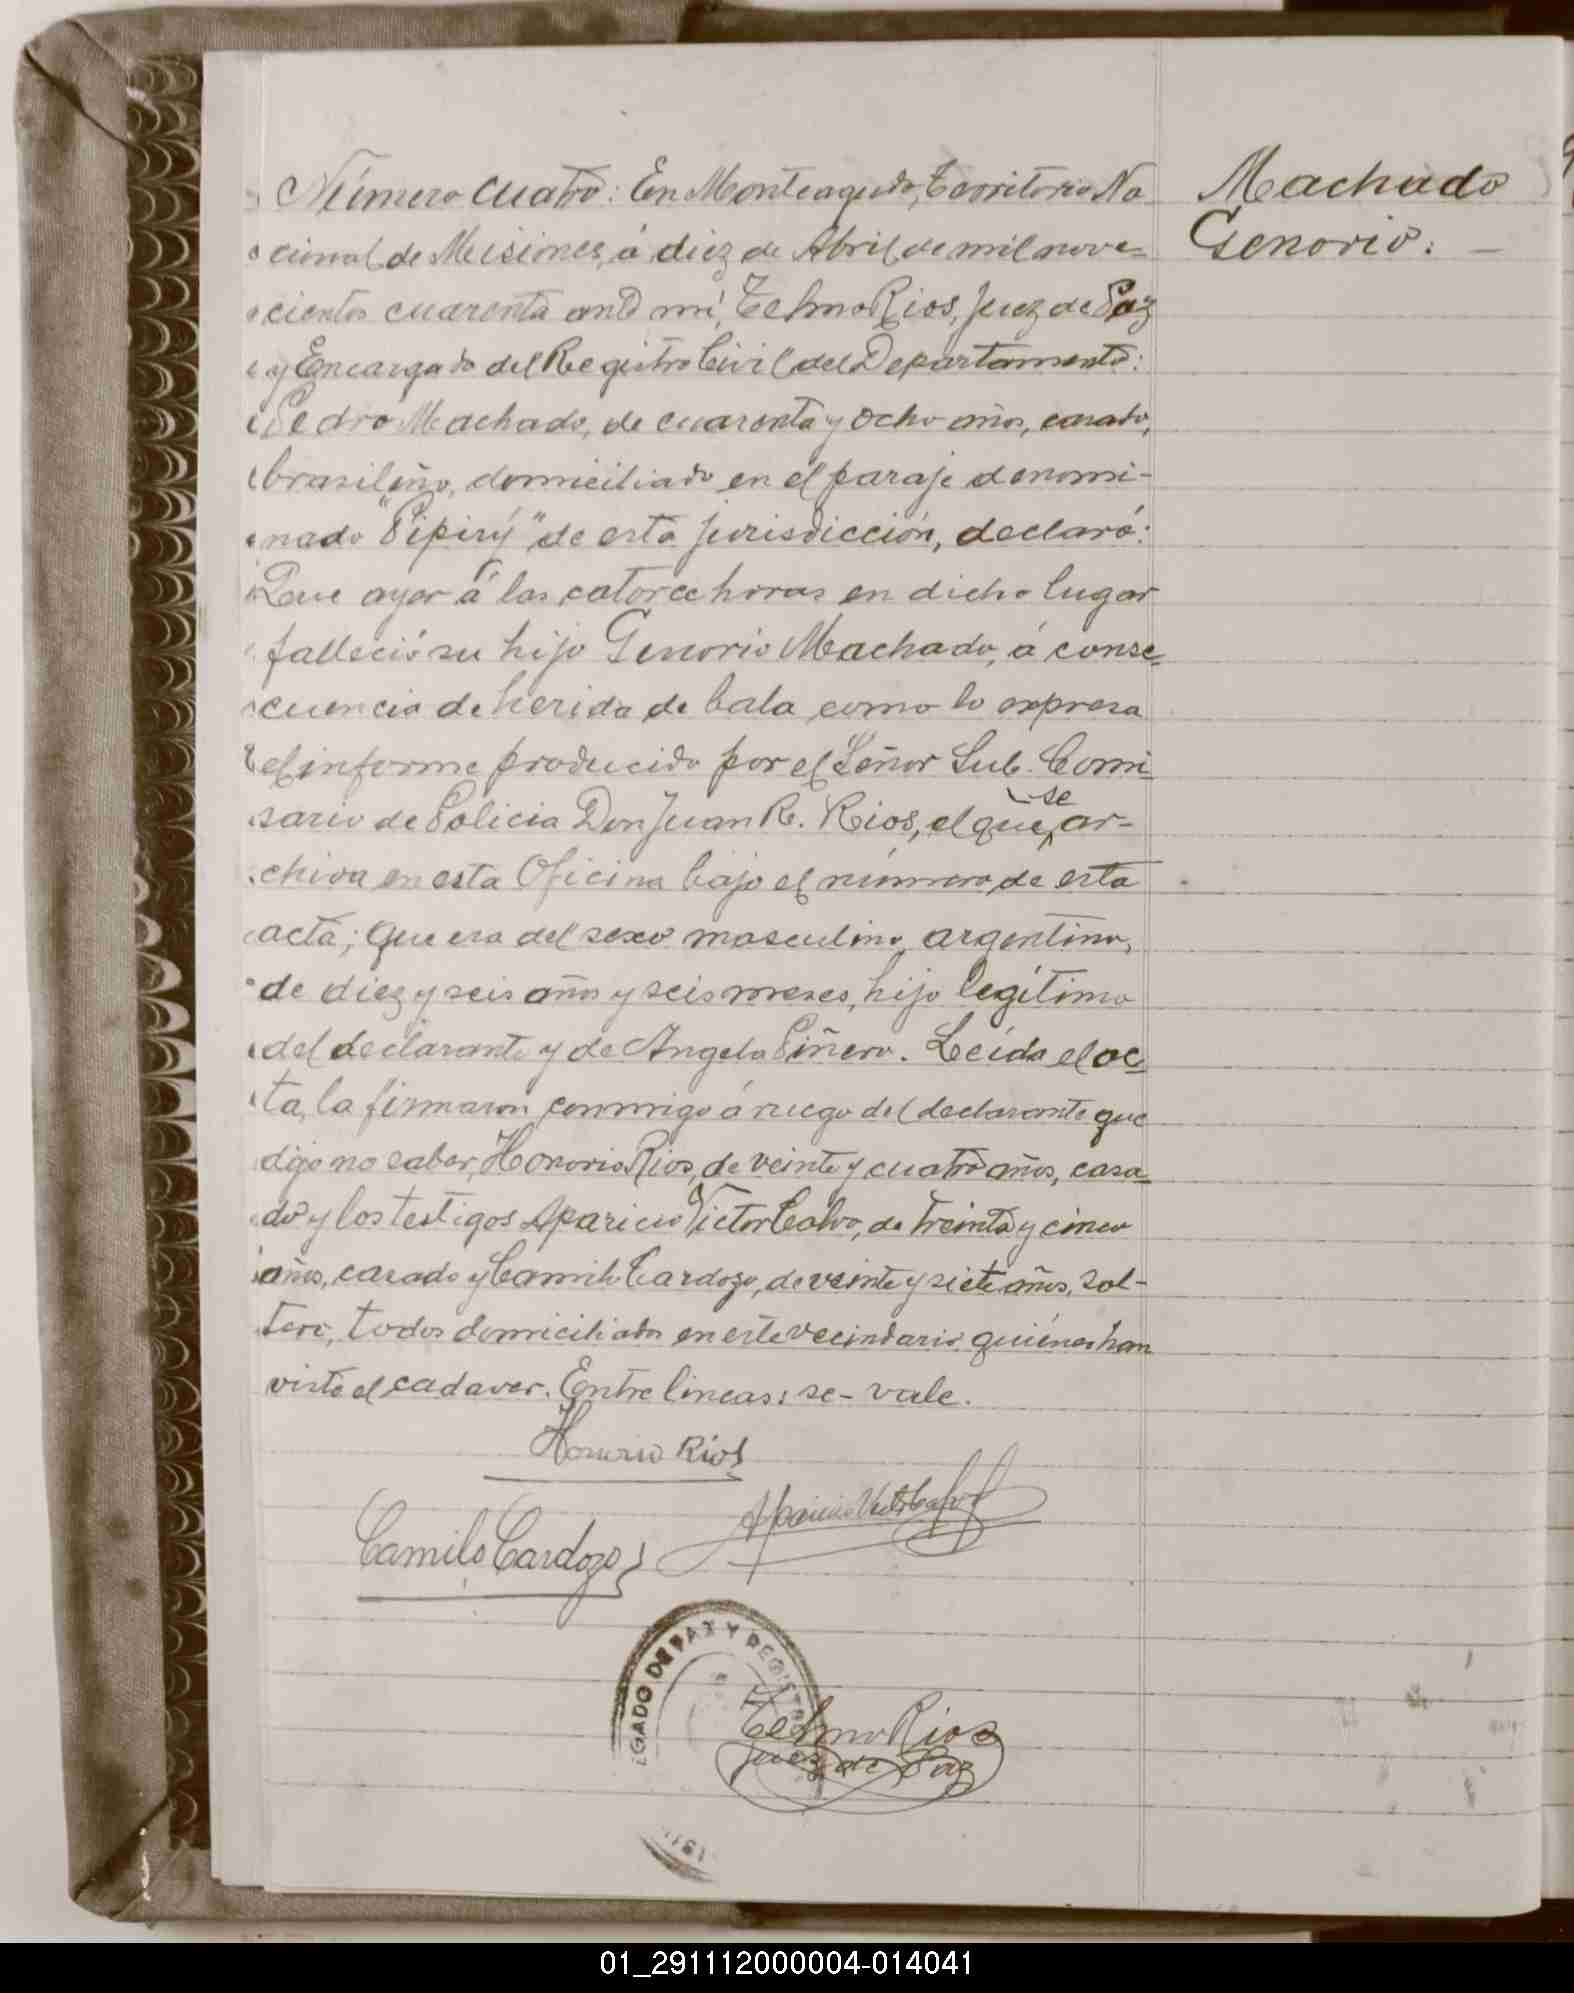 Número cuatro: En Monteagudo, Territorio Na-
cional de Misiones, á diez de Abril de mil nove-
cientos cuarenta antè mí, Telmo Rios, Juez de Paz
y Encargado del Registro Civil del Departamento:
Pedro Machado, de cuarenta y ocho años, casado,
brasileño, domiciliado en el paraje denomi-
nado "Pipirý" de esta jurisdicción, declaró:
Que ayer á las catorce horas en dicho lugar
falleció su hijo Genorio Machado, á conse-
cuencia de herida de bala como lo expresa
el informe producido por el Señor Sub. Comi-
sario de Policia Don Juan R. Rios, el que se ar-
chiva en esta Oficina bajo el número de esta
acta; que era del sexo masculino, argentino,
de diez y seis años y seis meses, hijo legítimo
del declarante y de Angela Piñero. Leída el ac-
ta, la firmaron conmigo á ruego del declarante que
dijo no saber, Honorio Rios, de veinte y cuatro años, casa-
do y los testigos Aparicio Victor Calvo, de treinta y cinco
años, casado y Camilo Cardozo, de veinte y siete años, sol-
tero, todos domiciliados en este vecindario quiénes han
visto el cadaver. Entre lineas: se- vale.
Machado
Genorio: -
Honorio Rios
Aparicio Victor Calvo
Camilo Cardozo
GADO DE PAZ Y REGISTRO
Telmo Rios
Juez de Paz
01_291112000004-014041